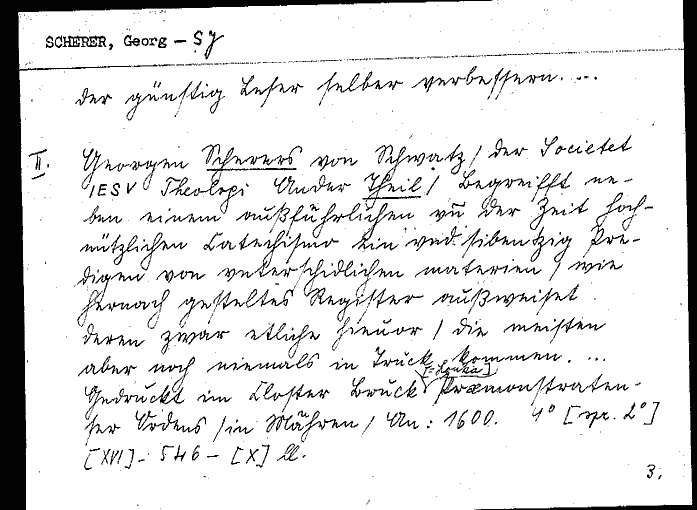 SCHERER, Georg – SJ
der günstig Leser selber verbessern. ...
II. Georgen Scherers von Schwatz / der Societet
IESV Theologi Ander Theil / Begreifft ne-
ben einem außführlichen vñ der Zeit hoch-
nützlichen Catechismo Ein vnd sibentzig Pre-
digen von vnterschidlichen materien / wie
hernach gesteltes Register außweiset
deren zwar etliche hieuor / die meisten
aber noch niemals in Truck kommen. ...
[=Louka]
Gedruckt im Closter Bruck Præmonstraten-
ser Ordens / in Mähren / An: 1600. 4° [spr. 2°]
[XVI] – 546 – [X] ll.
3.